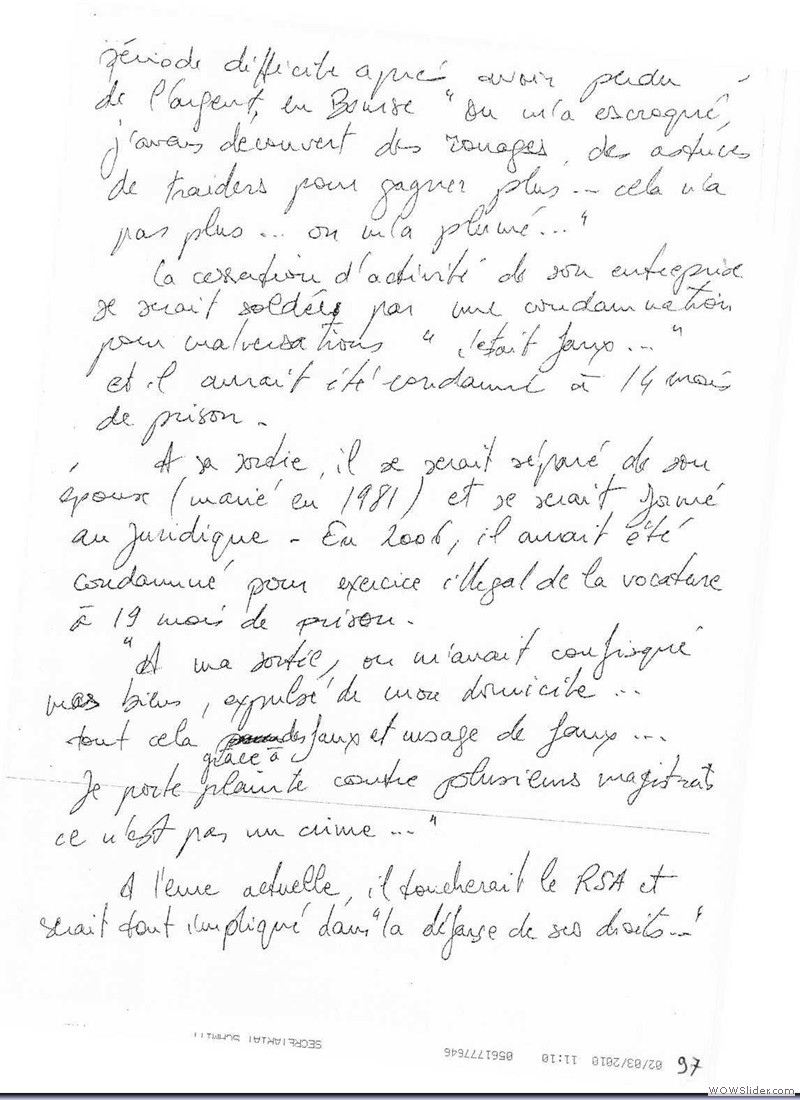 période difficile après avoir perdu
de l'argent, en Bourse "on m'a escroqué,
j'avais decouvert des rouages, des astuces
de traiders pour gagner plus... cela n'a
pas plus... on m'a plumé..."
La cessation d'activité de son entreprise
se serait soldée par une condamnation
pour malversations " c'était faux... "
et il aurait été condamné à 14 mois
de prison.
A sa sortie, il se serait séparé de son
épouse (marié en 1981) et se serait formé
au Juridique - En 2006, il aurait été
condamné pour exercice illégal de la vocature
à 19 mois de prison.
"A ma sortie, on m'avait confisqué
mes biens, expulsé de mon domicile...
tout cela faux et usage de faux...
grâce à
Je porte plainte contre plusieurs magistrats
ce n'est pas un crime..."
A l'eure actuelle, il toucherait le RSA et
serait tout impliqué dans "la défense de ses droits..."
SECRETARIAT SCHMITT
02/03/2010 11:10 0561777646
97
WOWSlider.com